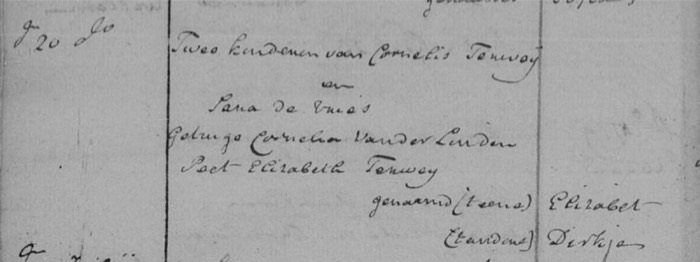 20 do
Twee kinderen van Cornelis Terweÿ
en
Sara de Vries
Getuige Cornelia Vander Linden
Peet Elizabeth Terwey
genaamd (teene) Elizabet
(tandere) Dirkje